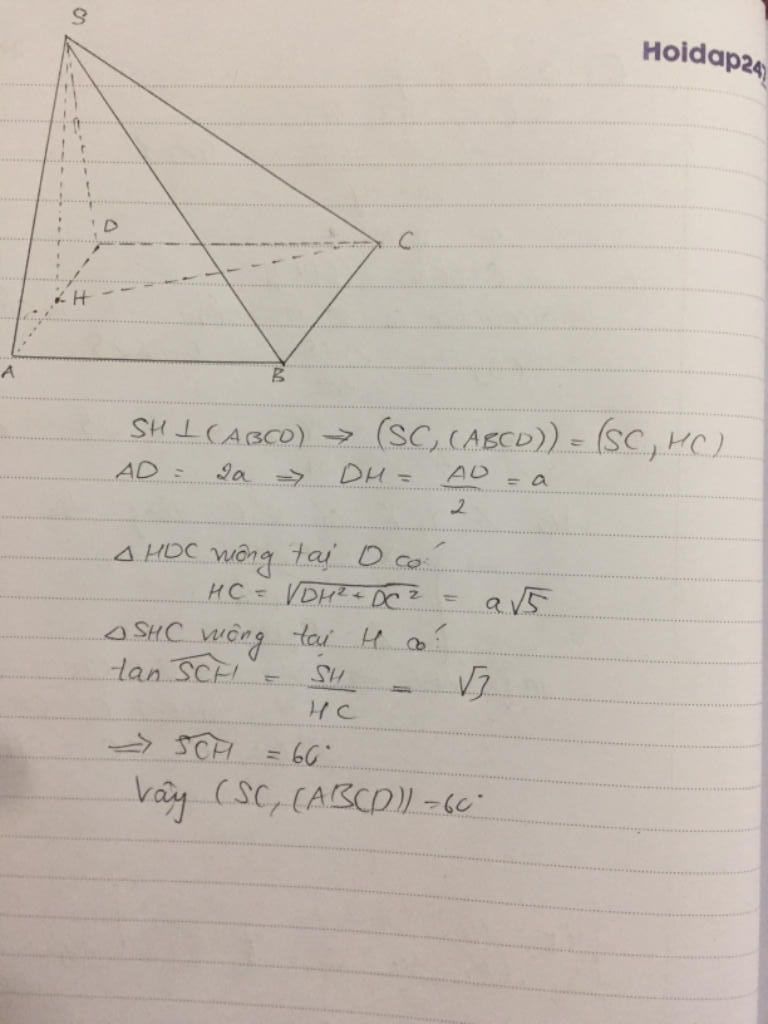 S
Hoidap247
D
C
H
A
B
SH ⊥ (ABCD) ⇒ (SC, (ABCD)) = (SC, HC)
AD = 2a ⇒ DH = AD/2 = a
△HDC vuông tại D có:
HC = √(DH² + DC²) = a√5
△SHC vuông tại H có:
tan SCH = SH/HC = √3
⇒ SCH = 60°
Vậy (SC, (ABCD)) = 60°